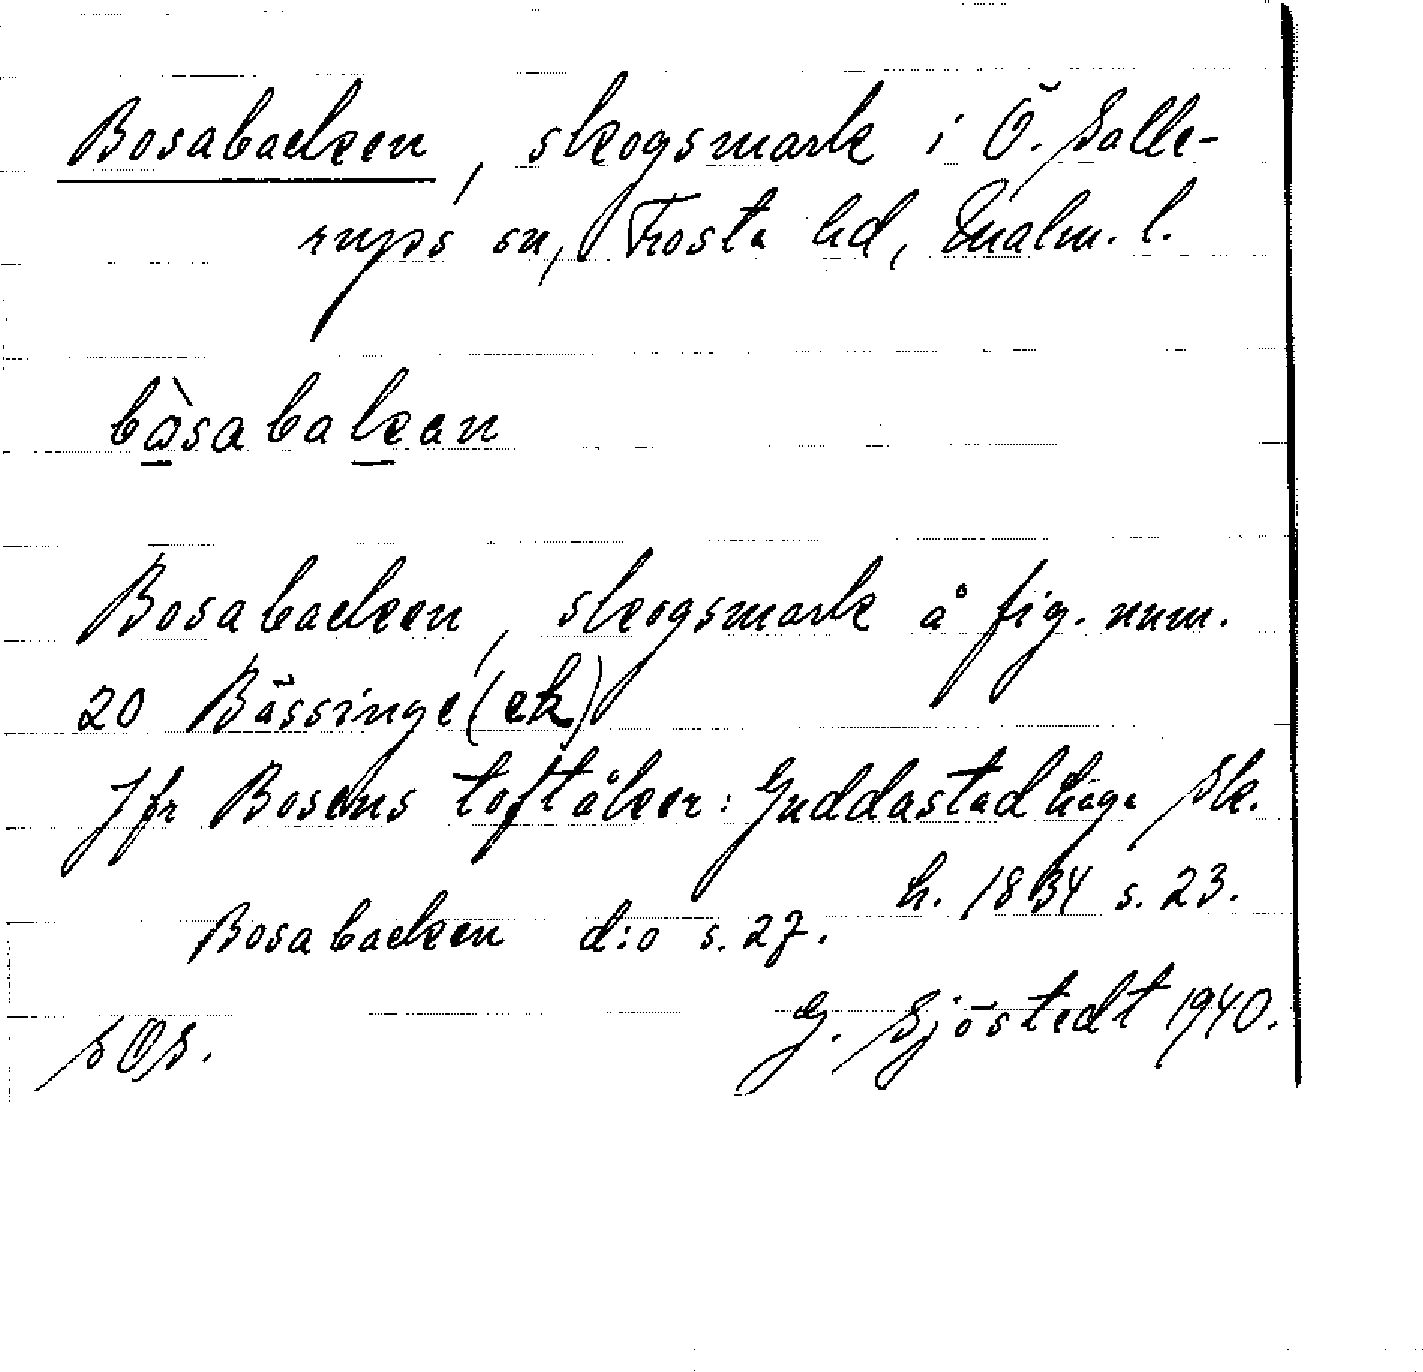 Bosabacken, skogsmark i Ö. Salle-
rups sn, Frosta hd, Malm. l.
bòsabakan
Bosabacken, skogsmark å fig. num.
20 Bässinge (ek)
Jfr Bosens toftåker: Guddastad häga Sk.
h. 1834 s. 23.
Bosabacken d:o s. 27.
G. Sjöstedt 1940.